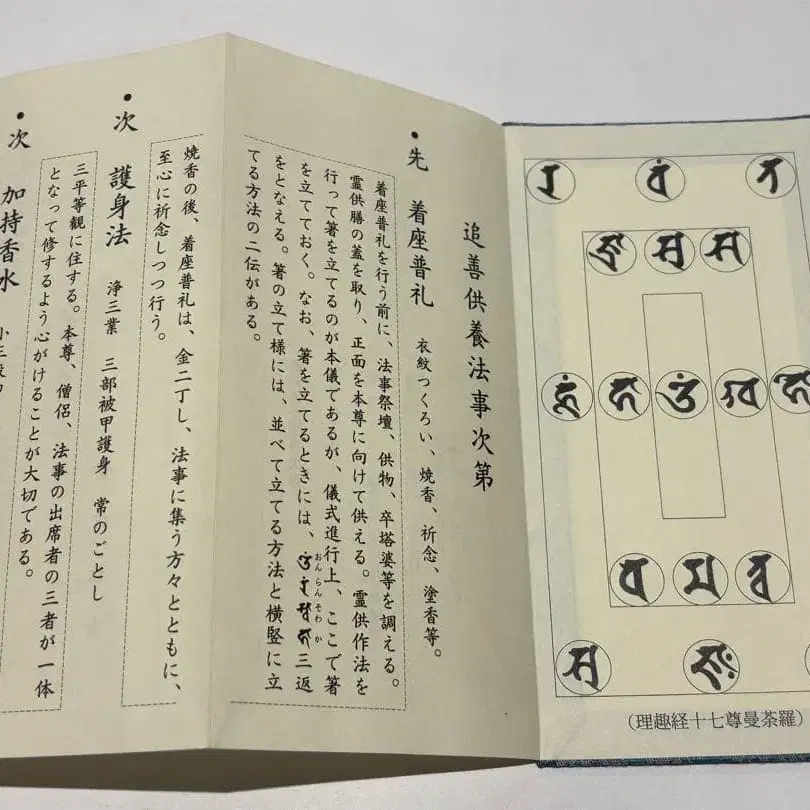 (理趣経十七尊曼荼羅)
追善供養法事次第
●先 着座普礼 衣紋つくろい、焼香、祈念、塗香等。
着座普礼を行う前に、法事祭壇、供物、卒塔婆等を調える。
霊供膳の蓋を取り、正面を本尊に向けて供える。霊供作法を
行って箸を立てるのが本儀であるが、儀式進行上、ここで箸
を立てておく。なお、箸を立てるときには、おんらんそわか三返
をとなえる。箸の立て様には、並べて立てる方法と横竪に立
てる方法の二伝がある。
焼香の後、着座普礼は、金二丁し、法事に集う方々とともに、
至心に祈念しつつ行う。
●次 護身法 浄三業 三部被甲護身 常のごとし
三平等観に住する。本尊、僧侶、法事の出席者の三者が一体
となって修するよう心がけることが大切である。
●次 加持香水